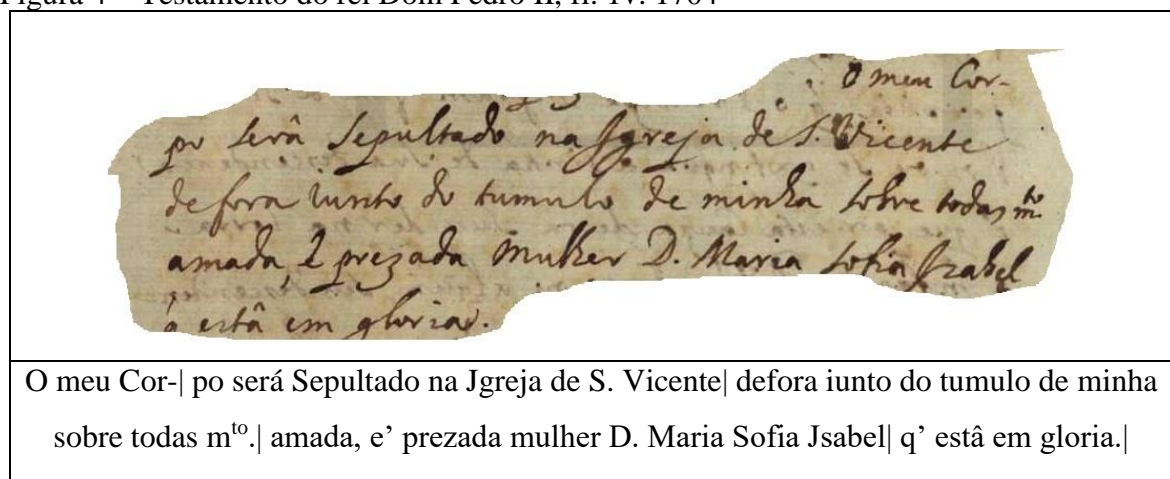 Figura 4 – Testamento do rei Dom Pedro II, fl. 1v. 1704
O meu Cor-
po serâ Sepultado na Jgreja de S. Vicente
defora iunto do tumulo de minha sobre todas mto.
amada, e prezada mulher D. Maria sofia Jzabel
q estâ em gloria.
O meu Cor-| po será Sepultado na Jgreja de S. Vicente| defora iunto do tumulo de minha
sobre todas mto.| amada, e’ prezada mulher D. Maria Sofia Jsabel| q’ estâ em gloria.|